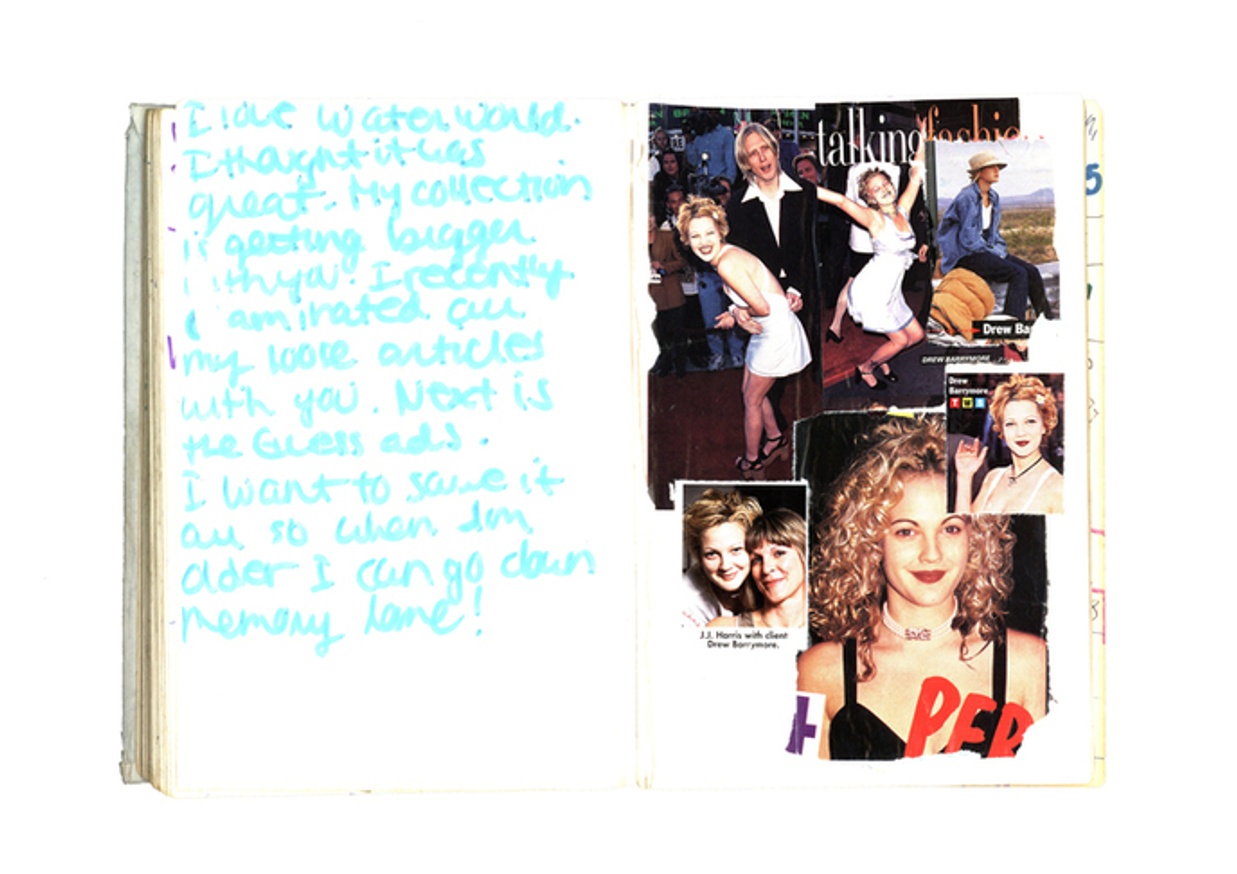 I love Waterworld.
I thought it was
great. My collection
is getting bigger
with you! I recently
laminated all
my loose articles
with you. Next is
the Guess ads.
I want to save it
all so when I'm
older I can go down
memory lane!
talking fashio
Drew Ba
DREW BARRYMORE
Drew
Barrymore
T W S
J.J. Harris with client
Drew Barrymore.
PER
5